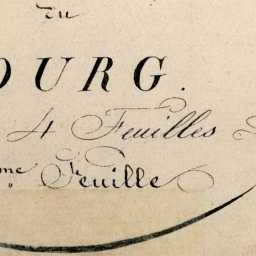 DU
OURG.
4 Feuilles
me Feuille